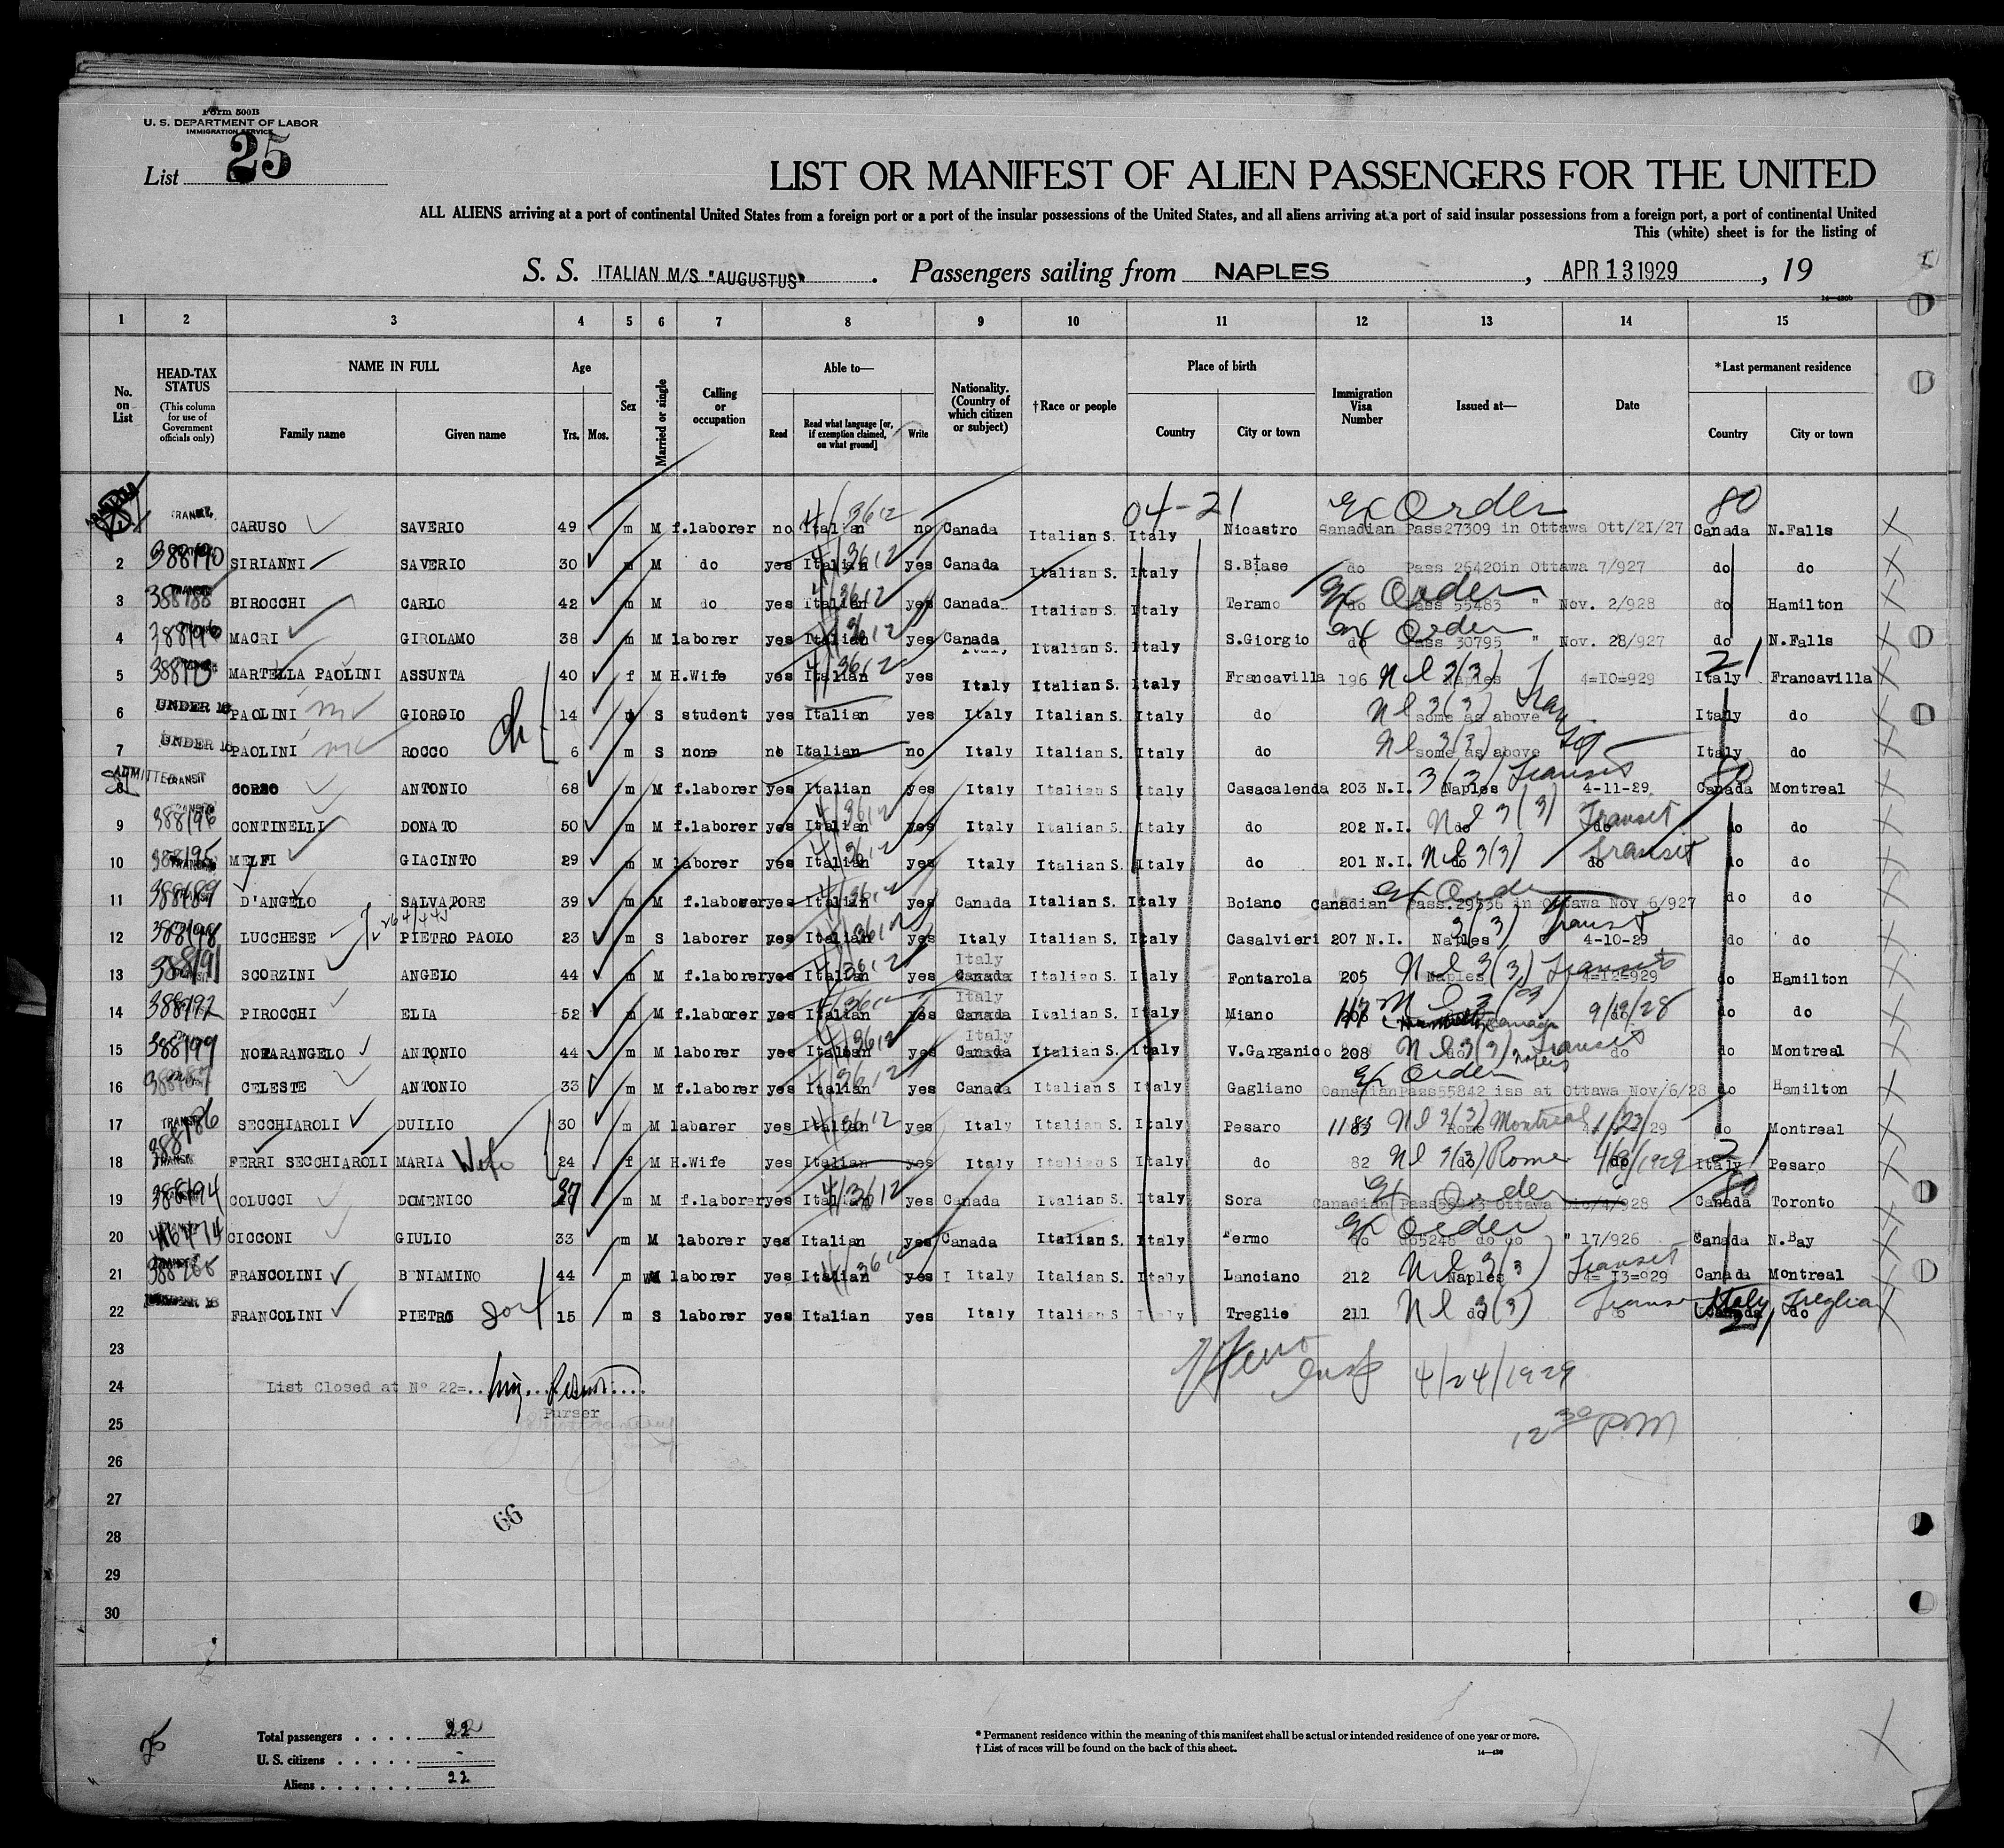 Form 500B
U. S. DEPARTMENT OF LABOR
IMMIGRATION SERVICE
List 25
LIST OR MANIFEST OF ALIEN PASSENGERS FOR THE UNITED
ALL ALIENS arriving at a port of continental United States from a foreign port or a port of the insular possessions of the United States, and all aliens arriving at a port of said insular possessions from a foreign port, a port of continental United
This (white) sheet is for the listing of
S. S. ITALIAN M/S "AUGUSTUS" . Passengers sailing from NAPLES , APR 13 1929 , 19
14—420b
1 2 3 4 5 6 7 8 9 10 11 12 13 14 15
No. on List HEAD-TAX STATUS (This column for use of Government officials only) NAME IN FULL Family name Given name Age Yrs. Mos. Sex Married or single Calling or occupation Able to— Read Read what language [or, if exemption claimed, on what ground] Write Nationality. (Country of which citizen or subject) †Race or people Place of birth Country City or town Immigration Visa Number Issued at— Date *Last permanent residence Country City or town
04-21 Ex Order 80
TRANSIT CARUSO SAVERIO 49 m M f.laborer no Italian no Canada Italian S. Italy Nicastro Canadian Pass27309 in Ottawa Ott/21/27 Canada N.Falls
2 388190 SIRIANNI SAVERIO 30 m M do yes Italian yes Canada Italian S. Italy S.Biase do Pass 26420in Ottawa 7/927 do do
3 388188 BIROCCHI CARLO 42 m M do yes Italian yes Canada Italian S. Italy Teramo do Ex Order Pass 55483 " Nov. 2/928 do Hamilton
4 MACRI GIROLAMO 38 m M laborer yes Italian yes Canada Italian S. Italy S.Giorgio do Ex Order Pass 30795 " Nov. 28/927 do N.Falls
5 MARTELLA PAOLINI ASSUNTA 40 f M H.Wife yes Italian yes Italy Italian S. Italy Francavilla 196 Naples 4=IO=929 21 Italy Francavilla
6 UNDER 16 PAOLINI GIORGIO ch 14 m S student yes Italian yes Italy Italian S. Italy do some as above Transit Italy do
7 UNDER 16 PAOLINI ROCCO 6 m S none no Italian no Italy Italian S. Italy do some as above Italy do
8 ADMITTED TRANSIT CORSO ANTONIO 68 m M f.laborer yes Italian yes Italy Italian S Italy Casacalenda 203 N.I. 3(3) Naples Transit 4-11-29 80 Canada Montreal
9 388196 CONTINELLI DONATO 50 m M f.laborer yes Italian yes Italy Italian S. Italy do 202 N.I. do 3(3) Transit do do do
10 388195 MELFI GIACINTO 29 m M laborer yes Italian yes Italy Italian S. Italy do 201 N.I. do 3(3) Transit do do do
11 388189 D'ANGELO SALVATORE 39 m M f.laborer yes Italian yes Canada Italian S. Italy Boiano Canadian Ex Order Pass.29536 in Ottawa Nov 6/927 do do
12 388198 LUCCHESE PIETRO PAOLO 23 m S laborer yes Italian yes Italy Italian S. Italy Casalvieri 207 N.I. 3(3) Naples Transit 4-10-29 do do
13 388191 SCORZINI ANGELO 44 m M f.laborer yes Italian yes Italy Canada Italian S. Italy Fontarola 205 Naples 3(3) Transit 4=12=929 do Hamilton
14 388192 PIROCCHI ELIA 52 m M f.laborer yes Italian yes Italy Canada Italian S. Italy Miano 9/19/28 do do
15 388199 NOTARANGELO ANTONIO 44 m M laborer yes Italian yes Italy Canada Italian S. Italy V.Garganico 208 do 3(3) Naples Transit do do Montreal
16 CELESTE ANTONIO 33 m M f.laborer yes Italian yes Canada Italian S. Italy Gagliano Ex Order CanadianPass55842 iss at Ottawa Nov/6/28 do Hamilton
17 388186 SECCHIAROLI DUILIO 30 m M laborer yes Italian yes Italy Italian S. Italy Pesaro 1183 3(3) Montreal 1/23/29 do Montreal
18 FERRI SECCHIAROLI MARIA Wife 24 f M H.Wife yes Italian yes Italy Italian S Italy do 82 do Rome Italy Pesaro
19 388194 COLUCCI DOMENICO 37 m M f.laborer yes Italian yes Canada Italian S. Italy Sora Canadian Ex Order Ottawa Dic/4/928 Canada Toronto
20 CICCONI GIULIO 33 m M laborer yes Italian yes Canada Italian S. Italy Fermo Ex Order do do5248 do do " 17/926 Canada N.Bay
21 FRANCOLINI BENIAMINO 44 m M laborer yes Italian yes Italy Italian S. Italy Lanciano 212 Naples 3(3) Transit 4= I3=929 Canada Montreal
22 UNDER 16 FRANCOLINI PIETRO son 15 m S laborer yes Italian yes Italy Italian S Italy Treglie 211 do 3(3) do Italy Treglia
23
24 List Closed at N° 22=
Purser
4/24/1929
12 30 PM
25
26
27
66
28
29
30
Total passengers . . . . 22
U. S. citizens . . . . . -
Aliens . . . . . . 22
* Permanent residence within the meaning of this manifest shall be actual or intended residence of one year or more.
† List of races will be found on the back of this sheet.
14—430